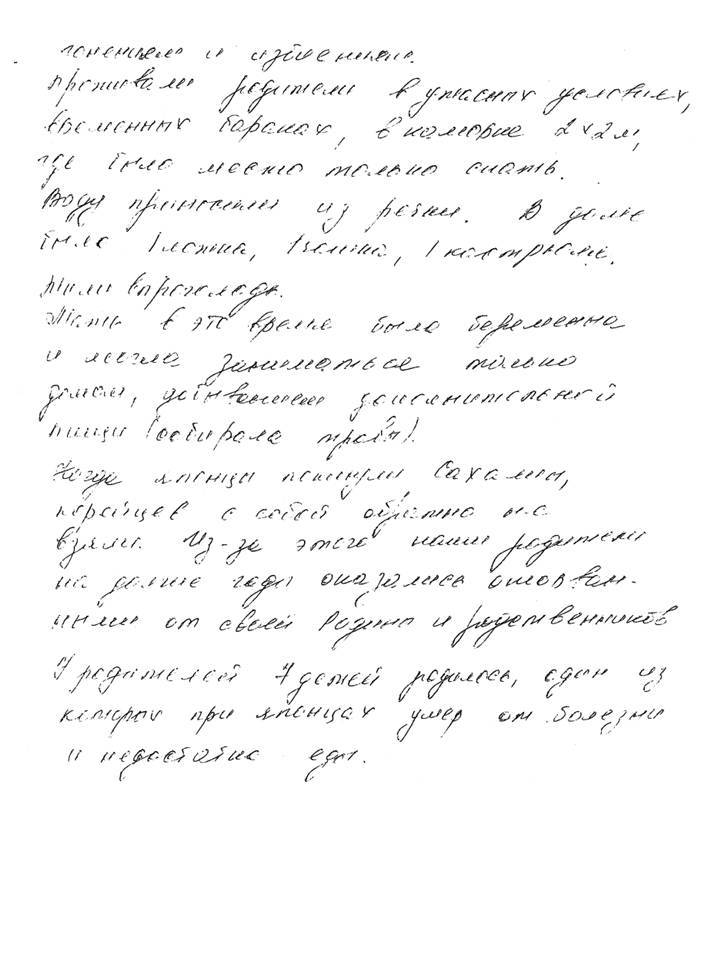 гонениям и избиениям.
Проживали родители в ужасных условиях,
временных бараках, в каморке 2х2м,
где было место только спать.
Воду приносили из речки. В доме
было 1 ложка, 1 чашка, 1 кастрюля.
Жили впроголодь.
Мать в это время была беременна
и могла заниматься только
домом, добыванием дополнительной
пищи (собирала траву).
Когда японцы покинули Сахалин,
корейцев с собой обратно не
взяли. Из-за этого наши родители
на долгие годы оказались оторван-
ными от своей Родины и родственников
У родителей 7 детей родилось, один из
которых при японцах умер от болезни
и недостатка еды.